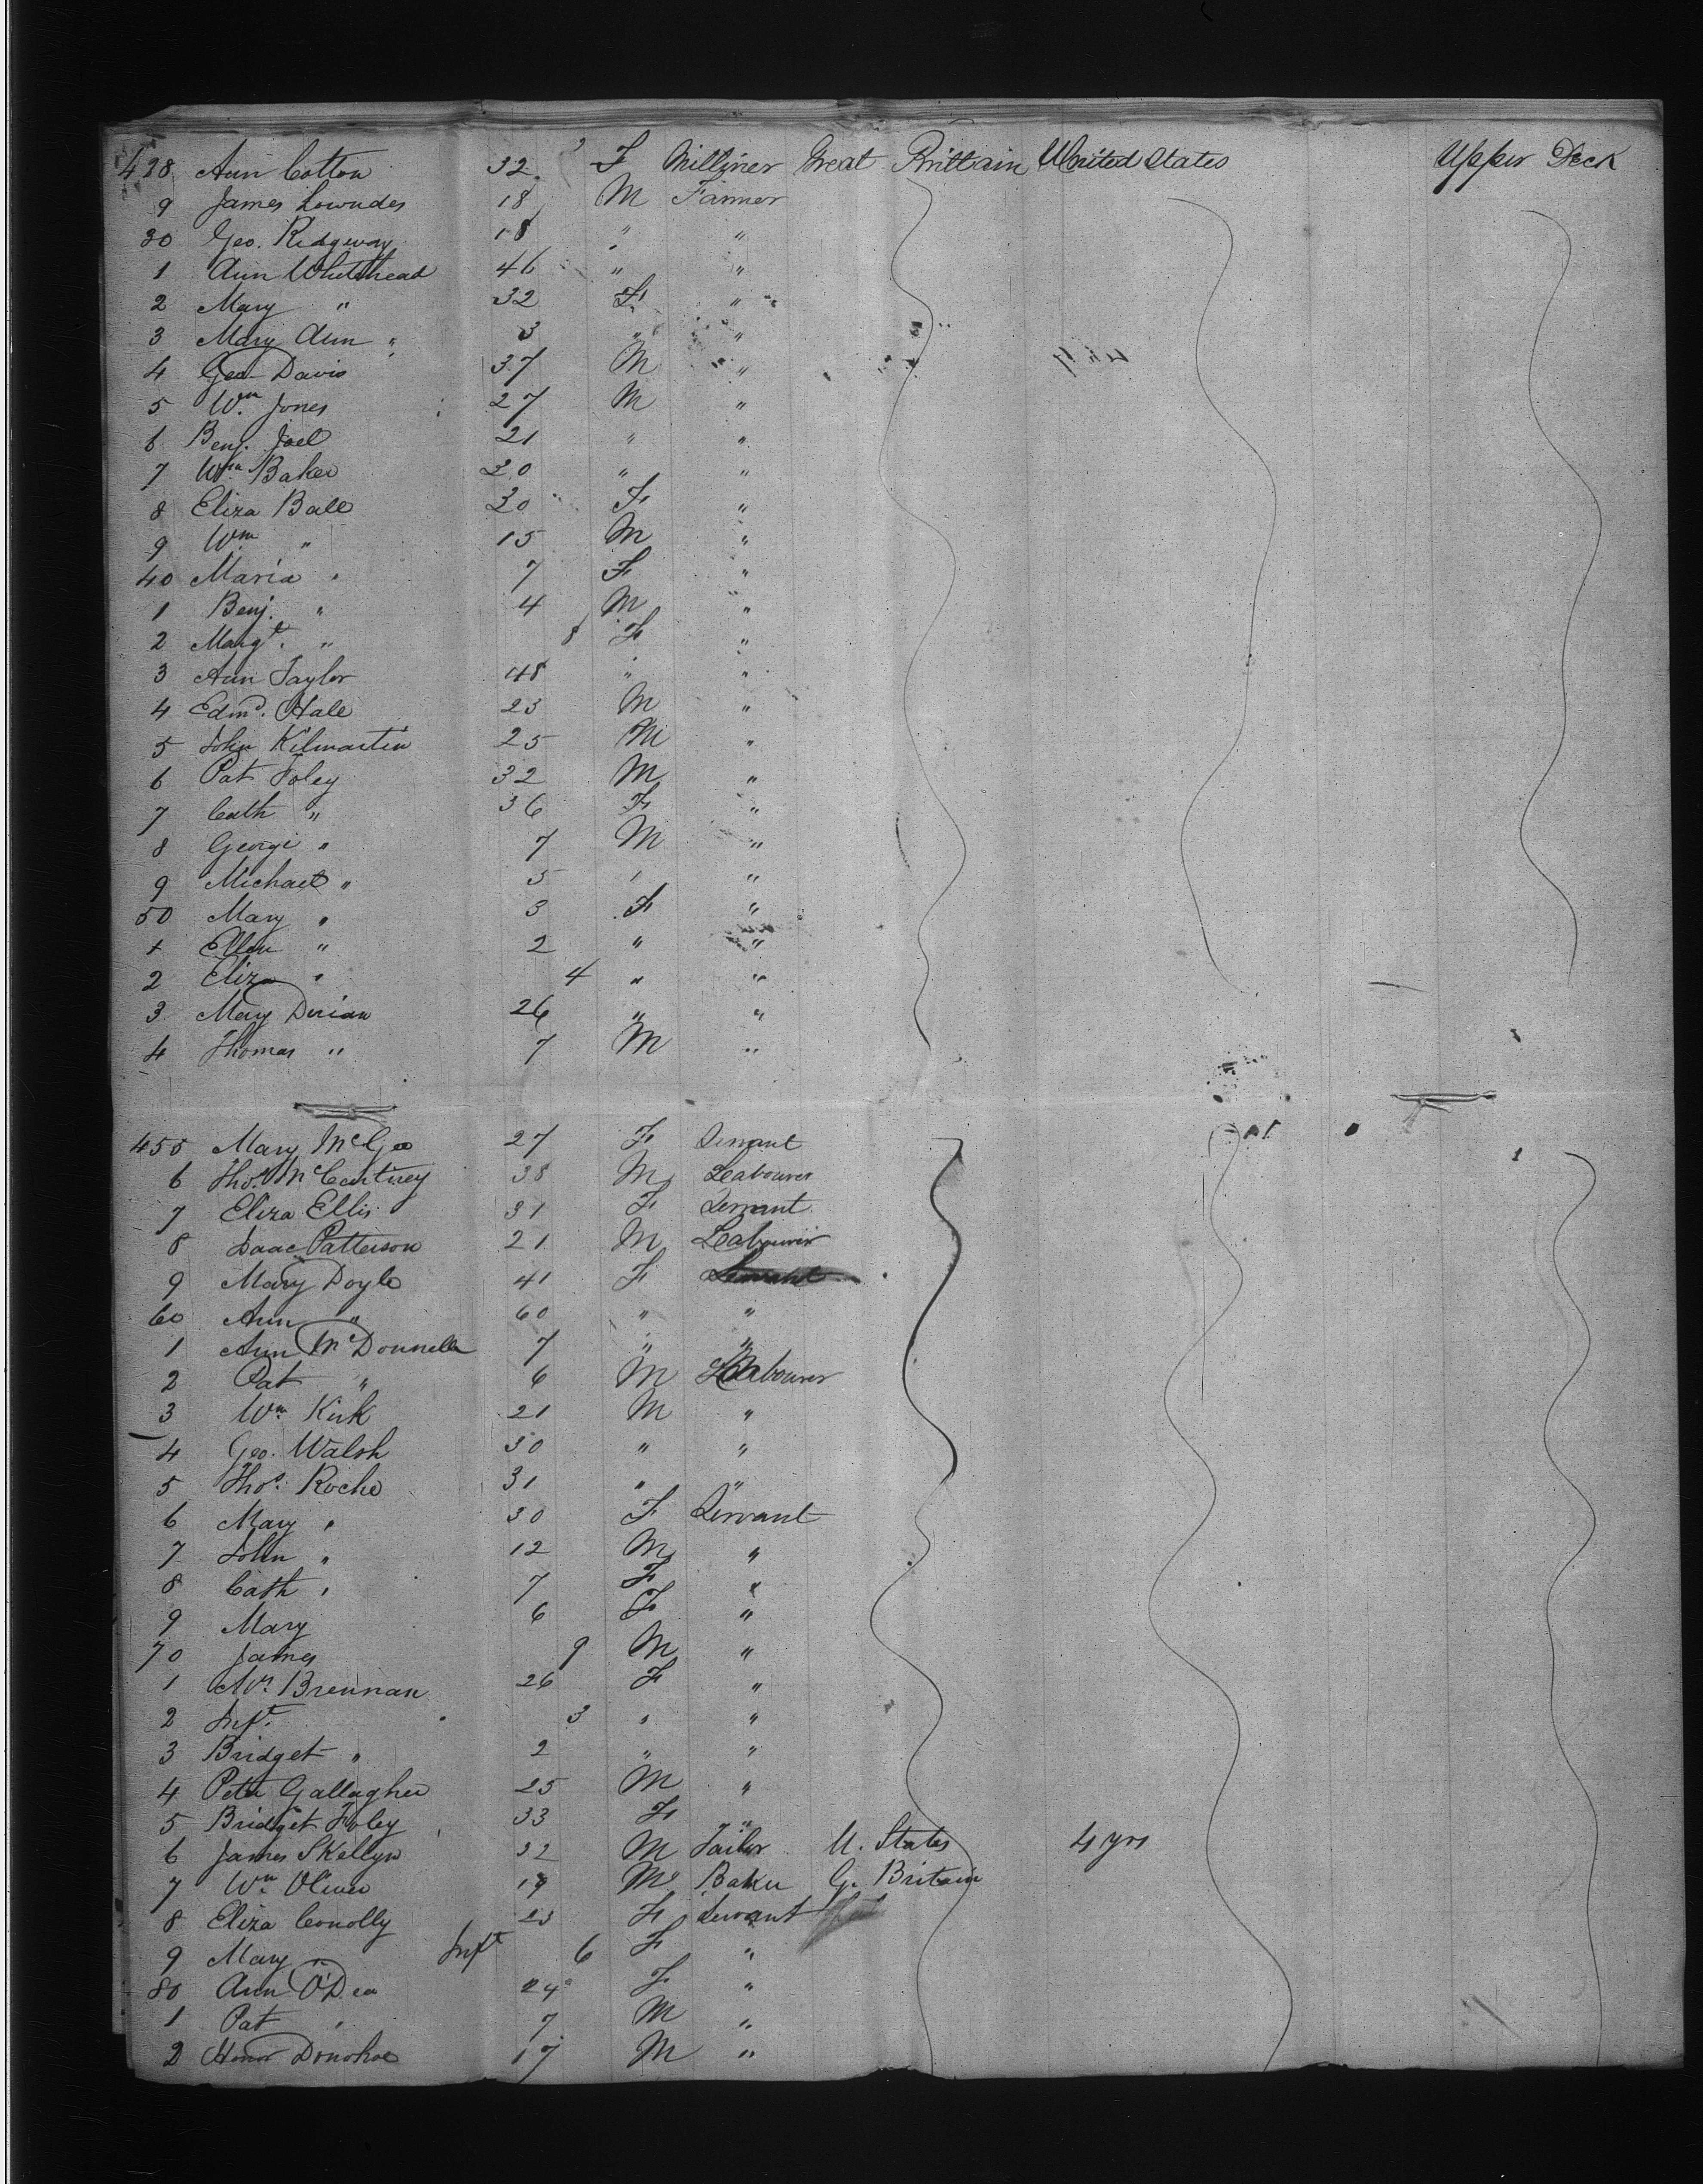 428 Ann Cotton 32 F Milliner Great Brittain United States Upper Deck
9 James Lowndes 18 M Farmer
30 Geo. Ridgway 18 " "
1 Ann Whitehead 46 " "
2 Mary " 32 F "
3 Mary Ann " 3 " "
4 Geo Davis 37 M "
5 Wm Jones 27 M "
6 Benj. Joel 21 " "
7 Wm Baker 20 " "
8 Eliza Ball 30 F "
9 Wm " 15 M "
40 Maria " 7 F "
1 Benj. " 4 M "
2 Margt. " 8 F "
3 Ann Taylor 48 " "
4 Edmd. Hale 23 M "
5 John Kilmartin 25 M "
6 Pat Foley 32 M "
7 Cath " 36 F "
8 George " 7 M "
9 Michael " 5 " "
50 Mary " 3 F "
1 Ellen " 2 " "
2 Eliza " 4 " "
3 Mary Durian 26 " "
4 Thomas " 7 M "
455 Mary McGee 27 F Servant
6 Thos. McCartney 38 M Leabourer
7 Eliza Ellis 31 F Servant
8 Isaac Patterson 21 M Labourer
9 Mary Doyle 41 F Servant
60 Ann " 60 " "
1 Ann McDonnell 7 " "
2 Pat " 6 M Labourer
3 Wm Kirk 21 M "
4 Geo. Walsh 30 " "
5 Thos. Roche 31 " "
6 Mary " 30 F Servant
7 John " 12 M "
8 Cath " 7 F "
9 Mary 6 F "
70 James 9 M "
1 Mrs. Brennan 26 F "
2 Inft. 3 " "
3 Bridget " 2 " "
4 Peter Gallagher 25 M "
5 Bridget Foley 33 F "
6 James Skellyn 32 M Tailor U. States 4 yrs
7 Wm Oliver 19 M Baker G. Britain
8 Eliza Conolly 23 F Servant
9 Mary " Inft 6 F "
80 Ann O'Dea 24 F "
1 Pat " 7 M "
2 Honor Donohoe 17 M "